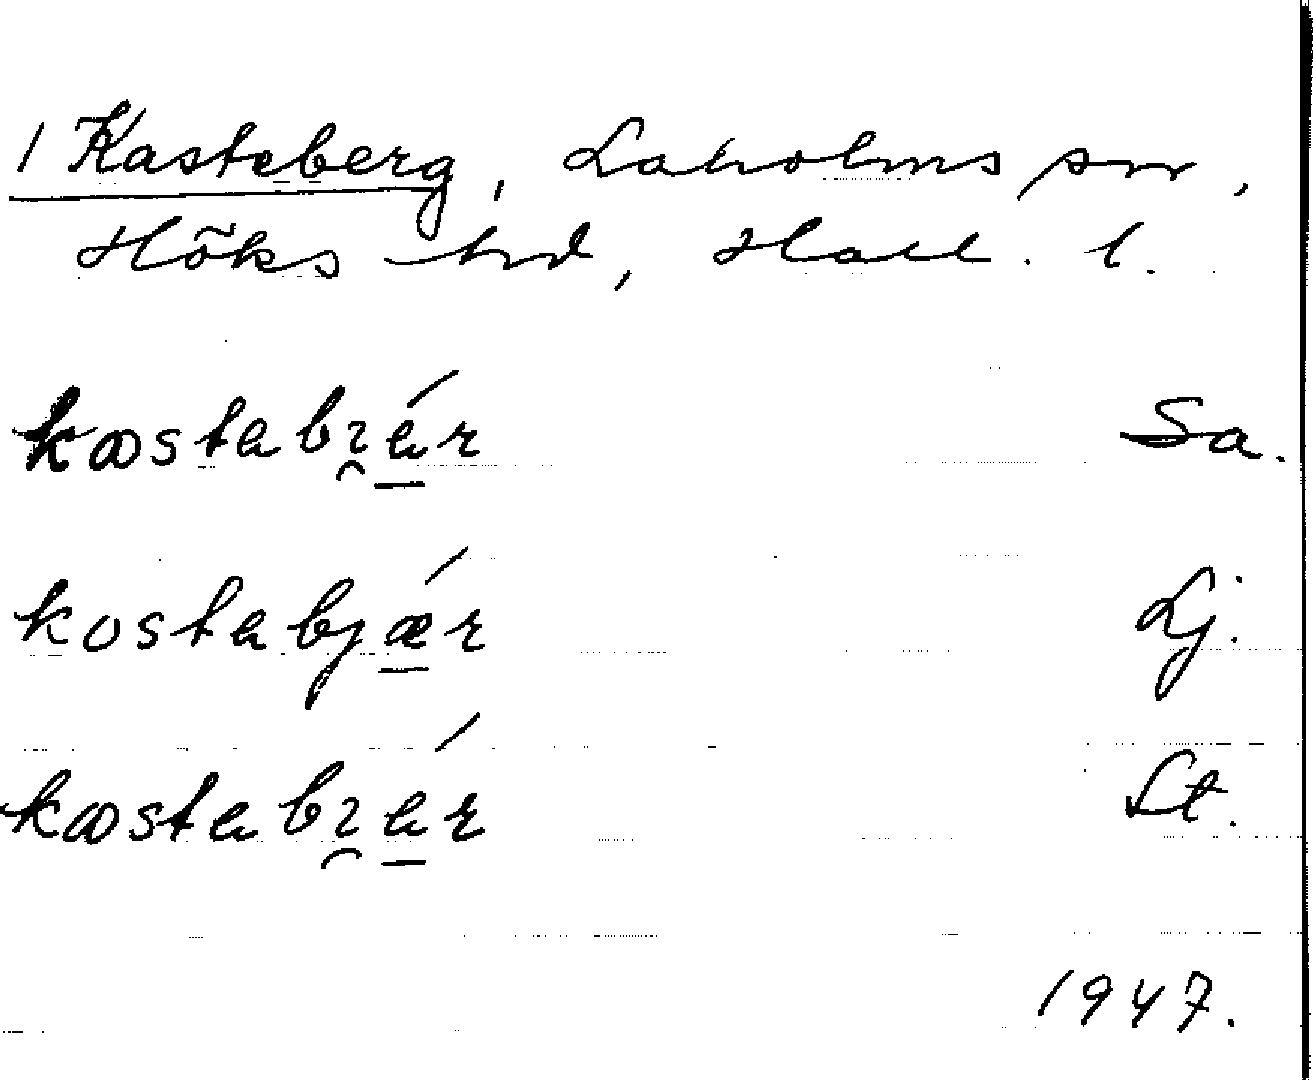 1 Kasteberg, Laholms sn,
Höks hd, Hall. l.
kastabɿ̯ǽr Sa.
kostabjǽr Lj.
kastabɿ̯ǽr St.
1947.